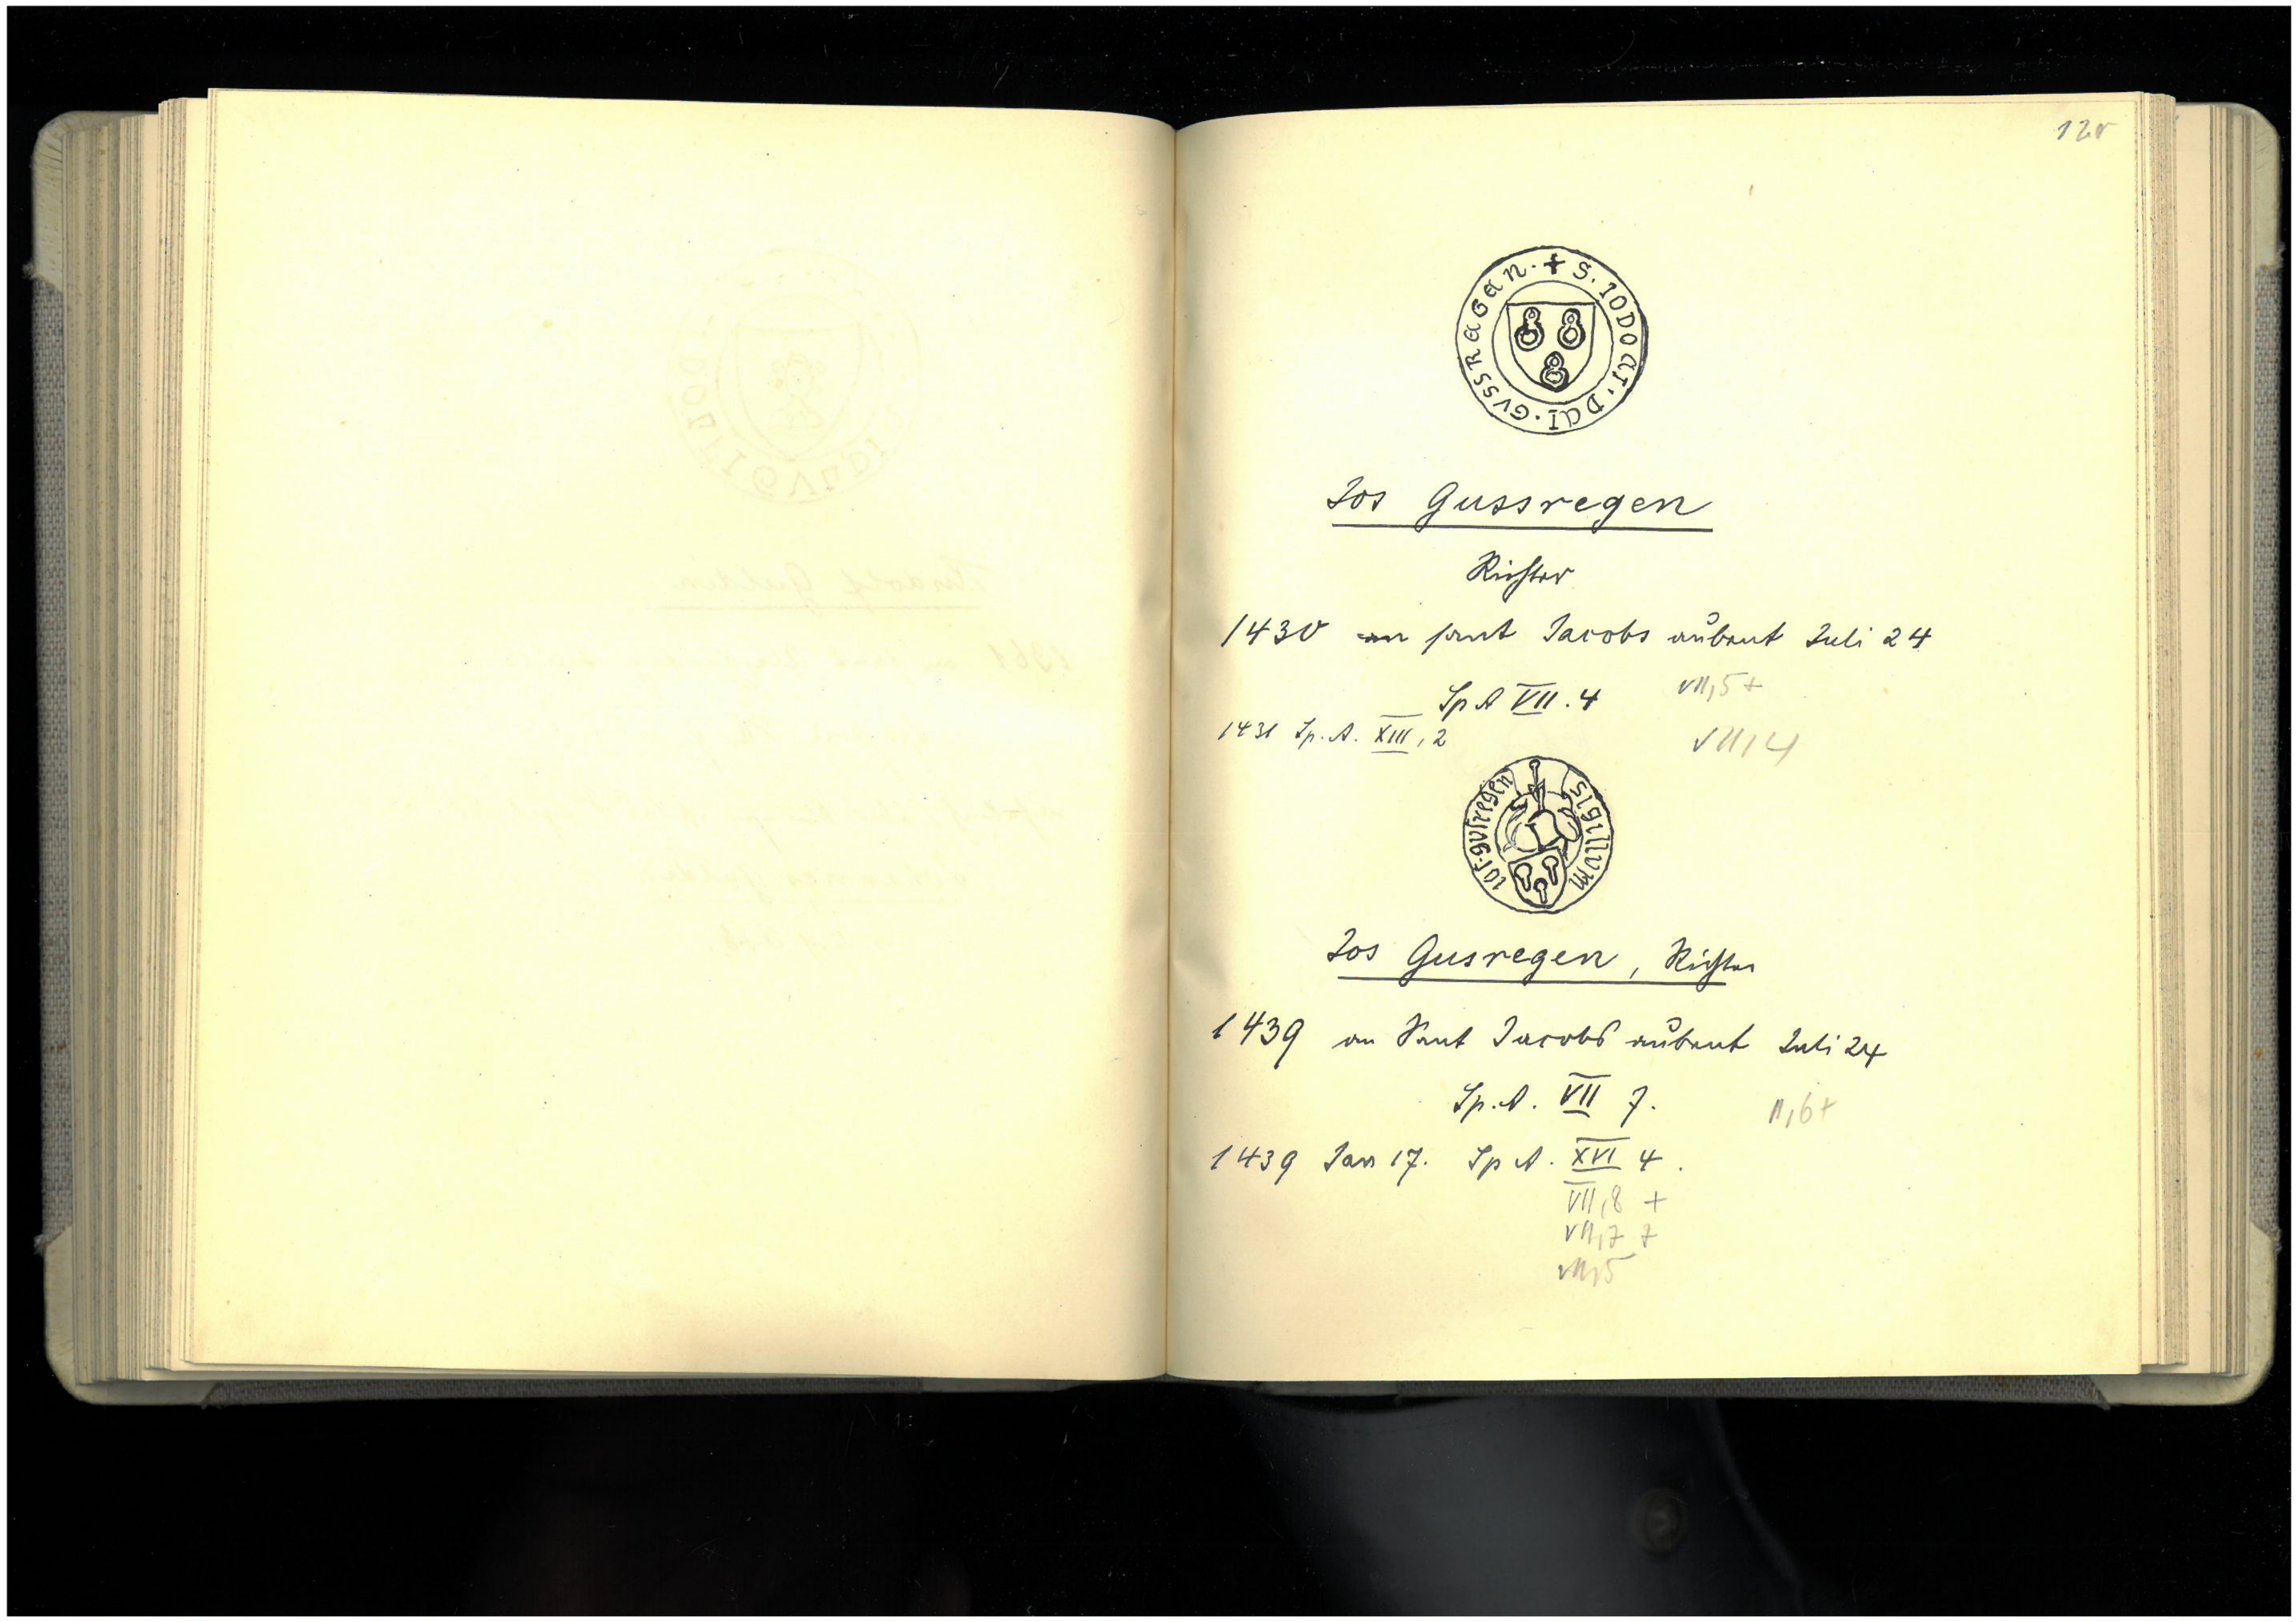 12r
+ S. IODOCI. DCI. GVSSREGEN.
Jos Gussregen
Richter
1430 an sant Jacobs aubent Juli 24
Sp A VII. 4 VII,5+
1431 Sp. A. XIII, 2 VII,4
sigillum jos gusregen
Jos Gusregen, Richter
1439 an Sant Jacobs aubent Juli 24
Sp. A. VII 7. II,6+
1439 Jan 17. Sp A. XVI 4.
VII,8 +
VII,7 7
VII,5